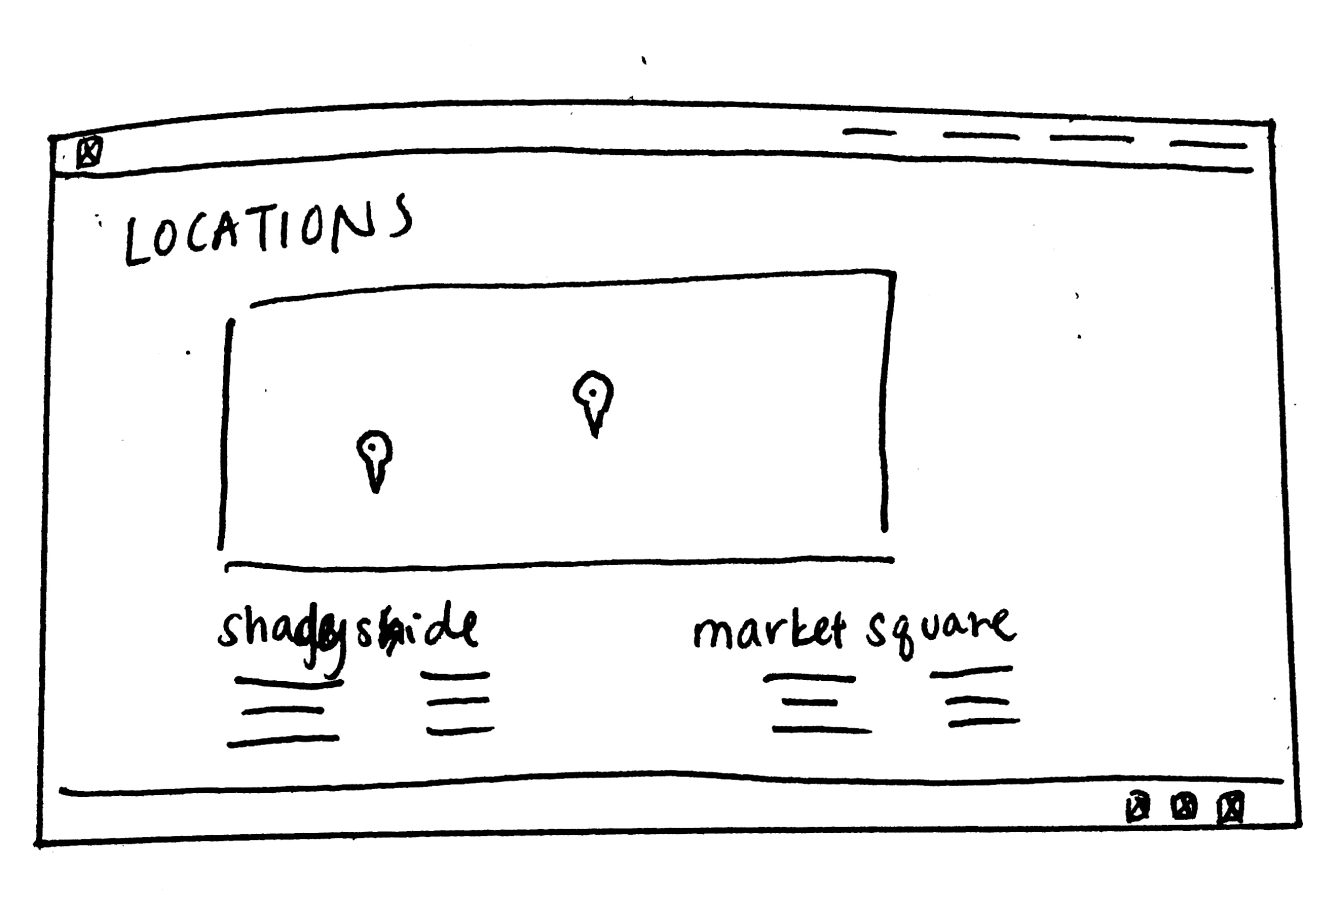 LOCATIONS
shadyside
market square